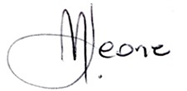 M. Leone